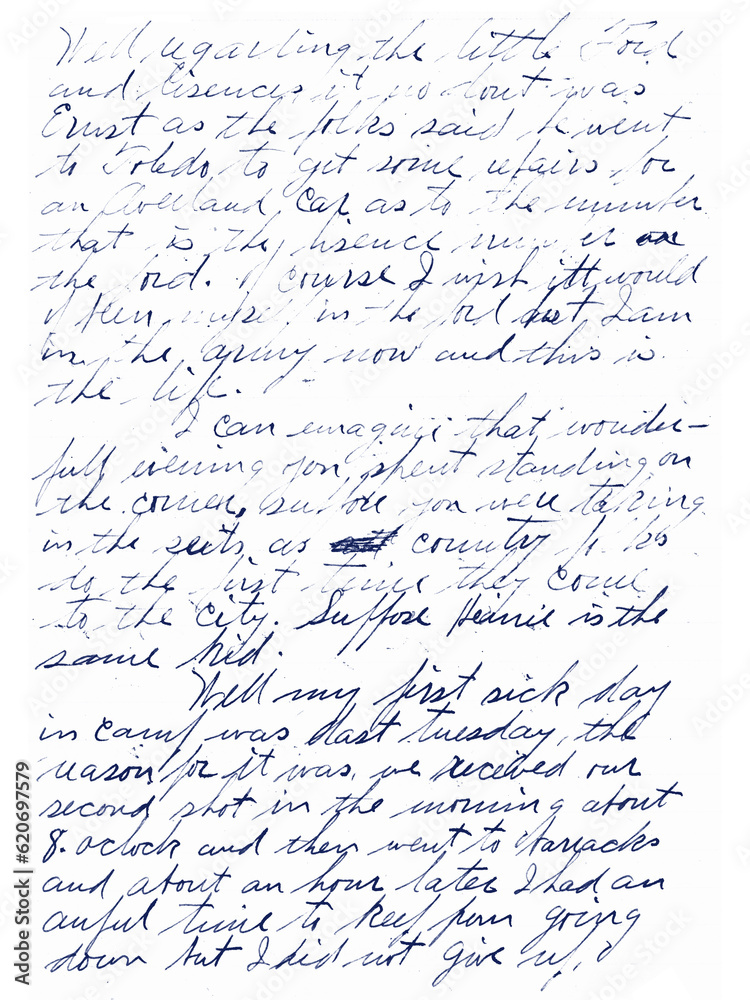 Well regarding the little Ford
and lisences it no dout was
Ernst as the folks said he went
to Toledo to get some repairs for
an Overland Car as to the number
that is the lisence number on
the ford. Of course I wish itt would
of been myself in the ford but I am
in the army now and this is
the life.
I can emagine that wonder-
full evening you spent standing on
the corner, suppose you were taking
in the seits as country folks
do the first time they come
to the city. Suppose Heinie is the
same kid.
Well my first sick day
in camp was last tuesday, the
reason for it was, we received our
second shot in the morning about
8. oclock and then went to barracks
and about an hour later I had an
awful time to keep from going
down but I did not give up,
Adobe Stock | #620697579